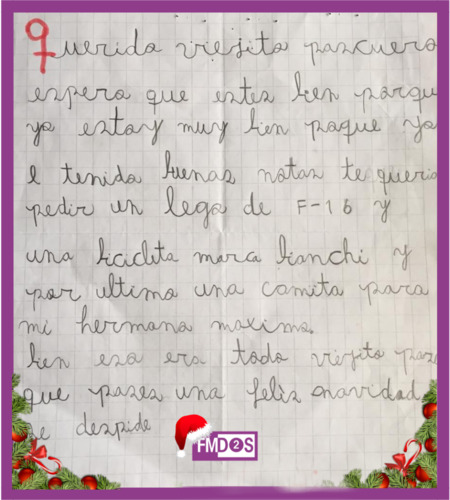 Querido viejito pascuero
espero que estes bien porqu
yo estoy muy bien poque yo
e tenido buenas notas te queria
pedir un lego de F-16 y
una bicicleta marca bianchi y
por ultimo una camita para
mi hermano maximo.
bien eso era todo viejito pas
que pases una feliz navidad
se despide
FMD2S